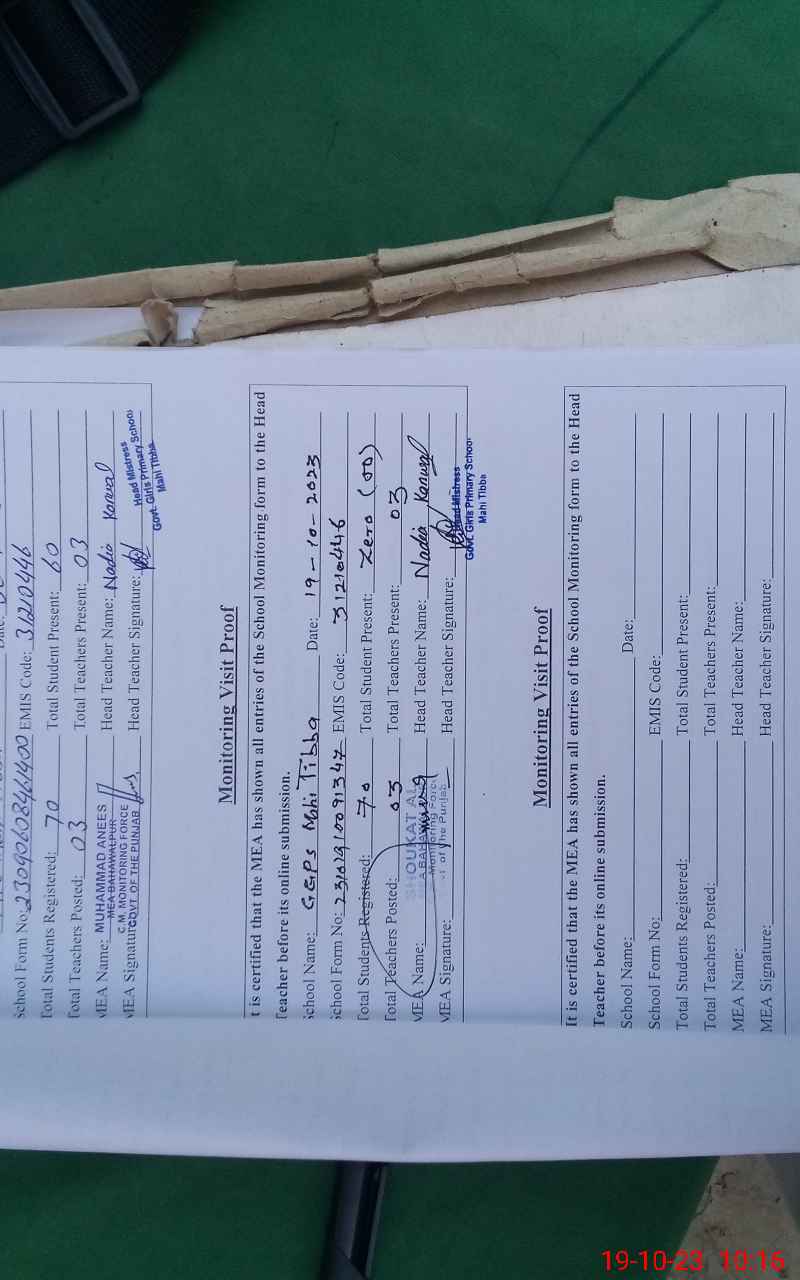 School Form No: 2309060846400 EMIS Code: 31210446
Total Students Registered: 70 Total Student Present: 60
Total Teachers Posted: 03 Total Teachers Present: 03
MEA Name: MUHAMMAD ANEES Head Teacher Name: Nadia Kanwal
MEA BAHAWALPUR
C.M. MONITORING FORCE
MEA Signature: GOVT. OF THE PUNJAB Head Teacher Signature:
Head Mistress
Govt. Girls Primary School
Mahi Tibba
Monitoring Visit Proof
t is certified that the MEA has shown all entries of the School Monitoring form to the Head
Teacher before its online submission.
School Name: GGPS Mahi Tibba Date: 19-10-2023
School Form No: EMIS Code: 31210446
Total Students Registered: 70 Total Student Present: Zero (00)
Total Teachers Posted: 03 Total Teachers Present: 03
MEA Name: SHOUKAT AL Head Teacher Name: Nadia Kanwal
MEA BAHAWALPUR
Monitoring Force
of the Punjab
MEA Signature: Head Teacher Signature:
Head Mistress
Govt. Girls Primary School
Mahi Tibba
Monitoring Visit Proof
It is certified that the MEA has shown all entries of the School Monitoring form to the Head
Teacher before its online submission.
School Name: Date:
School Form No: EMIS Code:
Total Students Registered: Total Student Present:
Total Teachers Posted: Total Teachers Present:
MEA Name: Head Teacher Name:
MEA Signature: Head Teacher Signature:
19-10-23 10:16